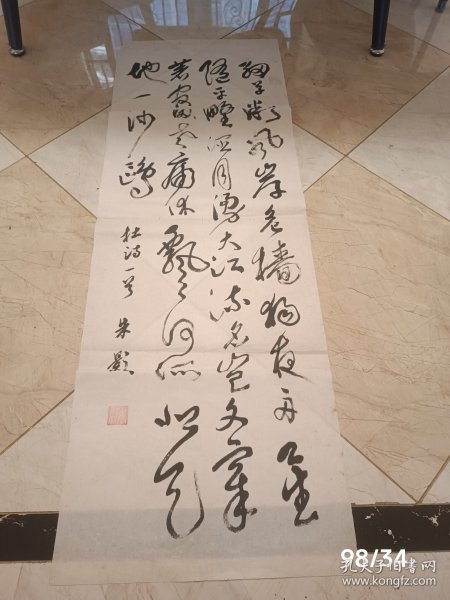 细草微风岸危樯独夜舟星
随平野阔月涌大江流名岂文章
著官应老病休飘々何所似天
地一沙鸥
杜诗一首 朱影
98/34
孔夫子旧书网
www.kongfz.com